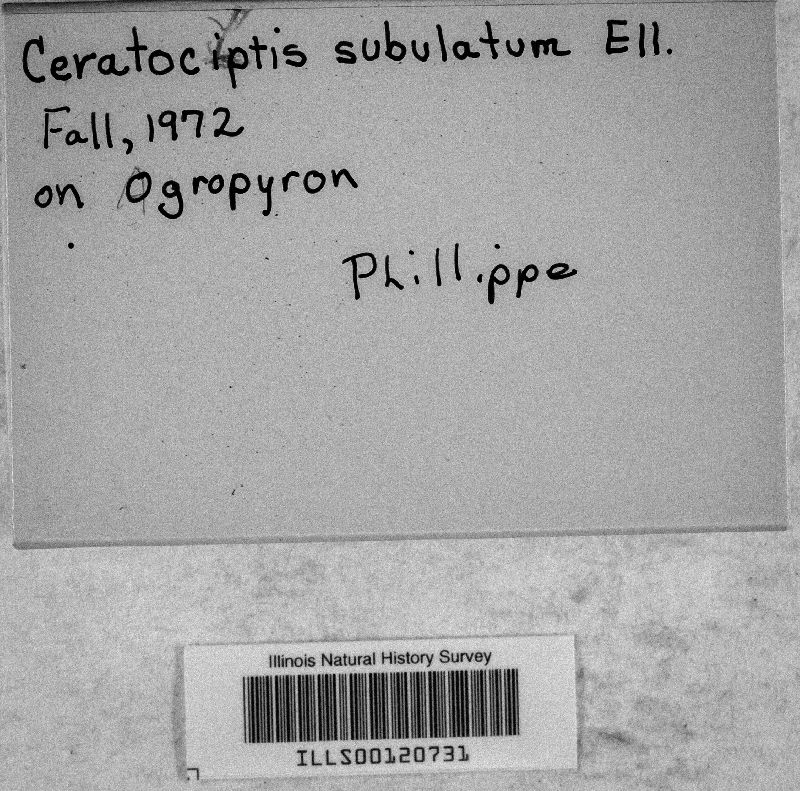 Ceratociptis subulatum Ell.
Fall, 1972
on Ogropyron
Phillippe
Illinois Natural History Survey
ILLS00120731